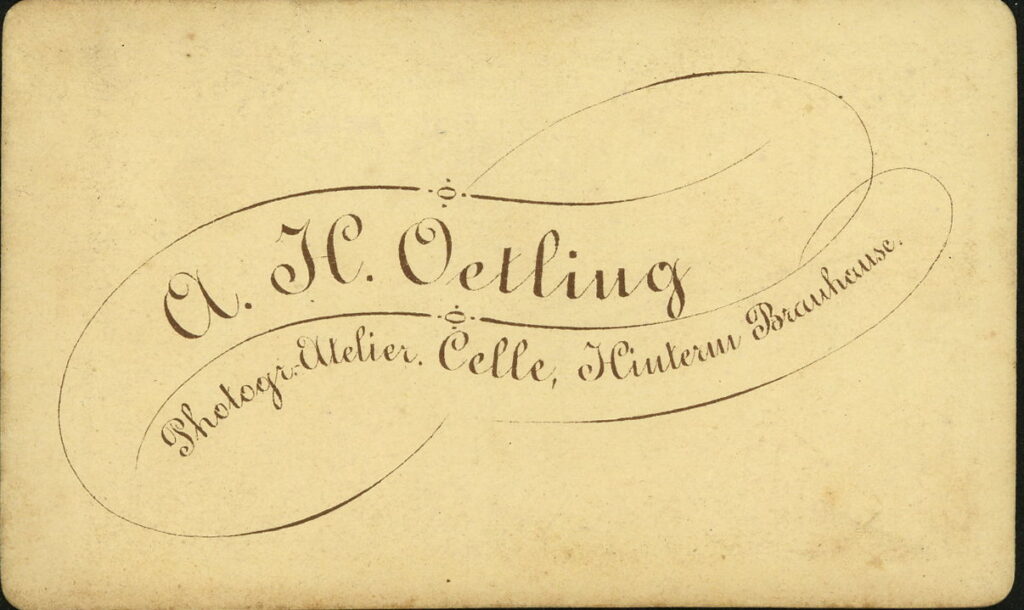 A. H. Oetling
Photogr.-Atelier. Celle, Hinterm Brauhause.